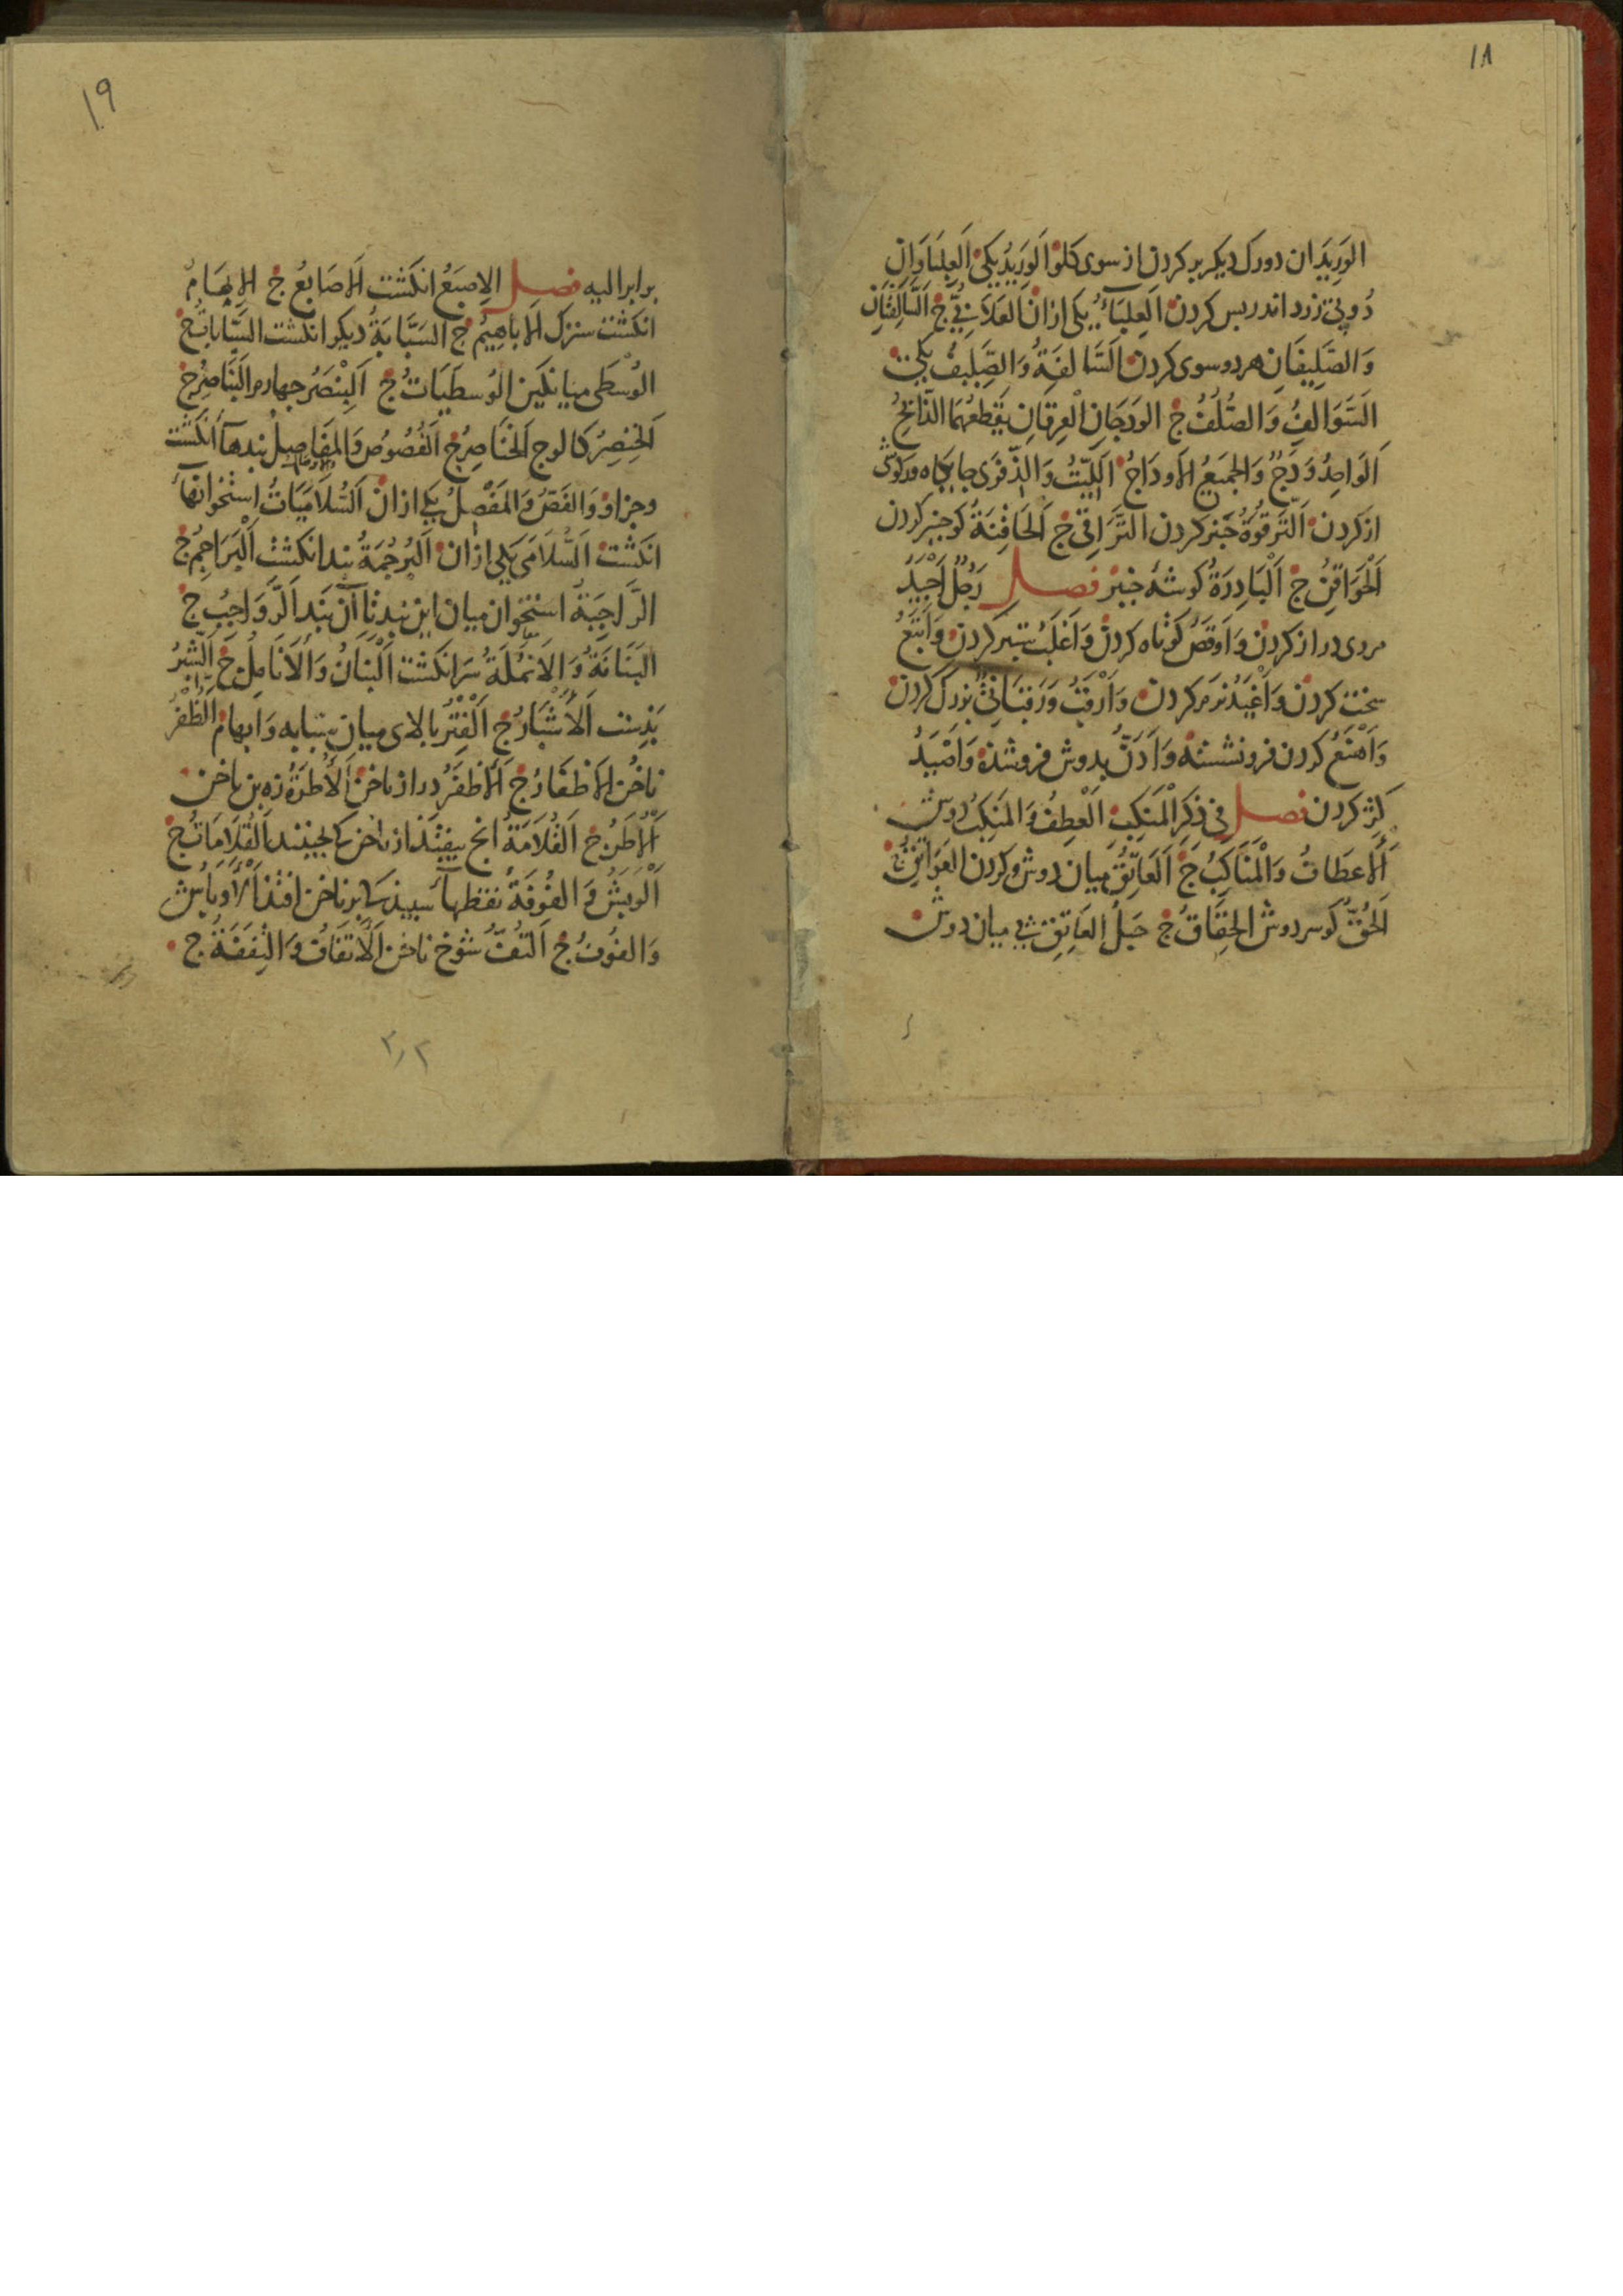 ١٨
الوَرِيدَان دورك ديكر بر كردن از سوى كلو الوَرِيدُ يكى العِلبَاوَانِ
دُو پى زرد اندر پس كردن العِلبَآءُ يكى ازان العَلَابِيُّ ج السَّالِفَتَانِ
وَالصَّلِيفَانِ هر دو سوى كردن السَّالِفَةُ وَالصَّلِيفُ يكى
السَّوَالِفُ وَالصُّلُفُ ج الوَدَجَانِ العِرقَانِ يَقطَعُهُمَا الذَّابِحُ
الوَاحِدُ وَدَجٌ وَالجَمِيعُ الأَودَاجُ اللِّيتُ وَالذِّفرَى جايكاه كوش
از كردن التَّرقُوَةُ چنبر كردن التَّرَاقِى ج الحَاقِنَةُ كو چنبر كردن
الحَوَاقِنُ ج البَادِرَةُ كوشهٔ چنبر فصل رَجُلٌ اَجيَدُ
مردى دراز كردن وَاَوقَصُ كوتاه كردن وَاَغلَبُ ستبر كردن وَاَتلَعُ
سخت كردن وَاَغيَدُ نرم كردن وَاَرقَبُ وَرَقَبَانِيٌّ بزرك كردن
وَاَهنَعُ كردن فرو نشسته وَاَدَنُّ بدوش فرو شده وَاَصيَدُ
كژ كردن فصل فى ذِكرِ المَنكِبِ العِطفُ وَالمَنكِبُ دوش
الأَعطَافُ وَالمَنَاكِبُ ج العَاتِقُ ميان دوش و كردن العَوَاتِقُ ج
الحُقُّ كو سر دوش الحِقَاقُ ج حَبلُ العَاتِقِ پى ميان دوش
١٩
برابر اليه فصل الاِصبَعُ انكشت الأَصَابِعُ ج الاِبهَامُ
انكشت سترك الأَبَاهِيمُ ج السَّبَّابَةُ ديكر انكشت السَّبَّابَاتُ ج
الوُسطَى ميانكين الوُسطَيَاتُ ج البِنصَرُ چهارم البَنَاصِرُ ج
الخِنصِرُ كالوج الخَنَاصِرُ ج الفُصُوصُ وَالمَفَاصِلُ بندهآ انكشت
وجزاو وَالفَصُّ وَالمَفصِلُ يكى ازان السُّلَامَيَاتُ استخوانهآ
انكشت السُّلَامَى يكى ازان البُرجُمَةُ بند انكشت البَرَاجِمُ ج
الرَّاجِبَةُ استخوان ميان اين بند تا آن بند الرَّوَاجِبُ ج
البَنَانَةُ وَالاَنمُلَةُ سر انكشت البَنَانُ وَالأَنَامِلُ ج الشِّبرُ
بَدِست الأَشبَارُ ج الفِترُ بالاى ميان سبابه وَابهام الظُّفرُ
ناخن الأَظفَارُ ج الأَظفَرُ دراز ناخن الأُطرَةُ زه بن ناخن
الأُطَرُ ج القُلَامَةُ انچ بيفتد از ناخن كه بچينند القُلَامَاتُ ج
الوَبشُ وَالفُوفَةُ نقطهآء سپيذ كه بر ناخن افتذ الأَوبَاشُ
وَالفُوفُ ج التُفُّ شوخ ناخن الأَتفَافُ وَالتِفَفَةُ ج
٢ر٢